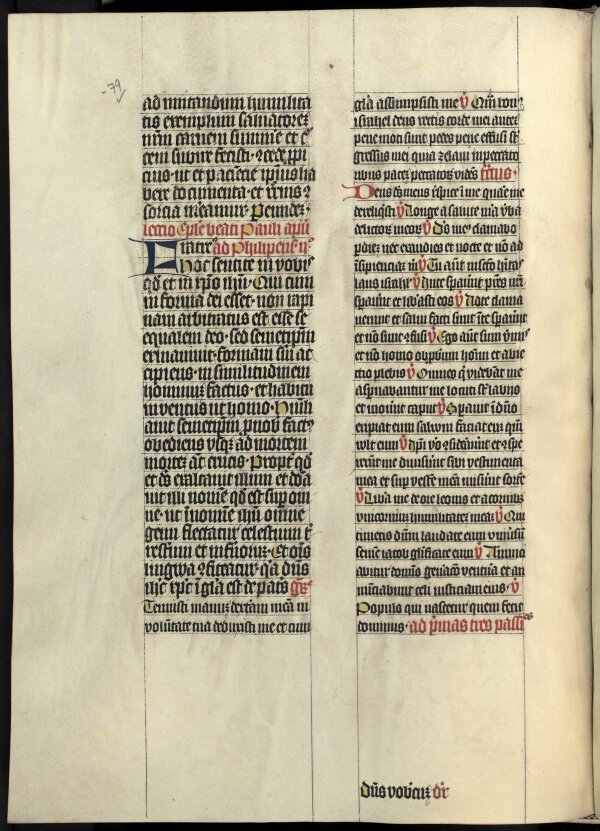 79
ad imitandum humilita
tis exemplum saluatorẽ
nr̃m carnem sumere et c̃
cem subire fecisti · ꝯcede ꝓpi
cius · ut et paciẽcie ipsius ha
bere documenta · et resur̃
sorcia meamur · Per eundẽ ·
lectio Ep̃le beati Pauli apli
Fratres ad Philipenses ·
Hoc sentite in vobis
qd̃ et in xp̃o ihũ · Qui cum
in forma dei esset · non rapi
nam arbitratus est esse se
equalem deo · sed semetip̃m
exinaniuit · formam s̃ui ac
cipiens · in similitudinem
hominum factus · et habitu
inuentus ut homo · Humili
auit semetip̃m p̃ nob̃ factꝰ
obediens vsqꝫ ad mortem
mortẽ aũt crucis · Propt̃ qd̃
et dẽs exaltauit illum et dona
uit illi nomẽ qd̃ est sup om̃e
nomẽ · ut in noĩe ihũ om̃e
genu flectatur celestium t̃
restrium et inf̃noꝝ · Et om̃is
lingwa ꝯfiteatur · qa dñs
ihc̃ xp̃c in gl̃a est dei patris Gr̃
Tenuisti manum dexteram meã in
voluntate tua deduxisti me et cum
gl̃a assumpsisti me V̾ Qm̃ bonꝰ
israhel deus rectis corde mei autẽ
pene moti sunt pedes pene effusi sũt
gressus mei quia zelaui in peccato
ribus pacem peccatorum vidẽs Tractus ·
Deus deus meus respice in me quare me
dereliqsti V̾ Longe a salute mea v̾ba
delictorum meorum V̾ Ds̃ meus clamabo
per diem nec exaudies et nocte et nõ ad
insipienciam m̃ V̾ Tu aũt in sc̃o hita
laus israhel V̾ In te sperauerũt pr̃es nr̃i
sperauerũt et lib̾asti eos V̾ Ad te clama
uerunt et salui facti sunt in te sperauerũt
et nõ sunt ꝯfusi V̾ Ego aũt sum v̾mis
et nõ homo opprobriũ hoĩm et abie
ctio plebis V̾ Omnes qui videbant me
aspernabantur me locuti sũt labiis
et mouerũt caput V̾ Sperauit in dño
eripiat eum saluum faciat eum qm̃
wlt eum V̾ Ip̃i vo ꝯsiderauerũt et ꝯspe
xerũt me diuiserũt sibi vestimenta
mea et sup vestem meã miserũt sortem
V̾ Libera me de ore leonis et a cornibus
vnicornium humilitatem meam V̾ Qui
timetis dñm laudate eum vniuersum
semen iacob glificate eum V̾ Annun
ciabitur domino generacio ventura et an
nunciabunt celi iusticiam eius · V̾
Populo qui nascetur quem fecit
dominus · ad p̃mas tres passiones
dñs vobiscũ dr̃